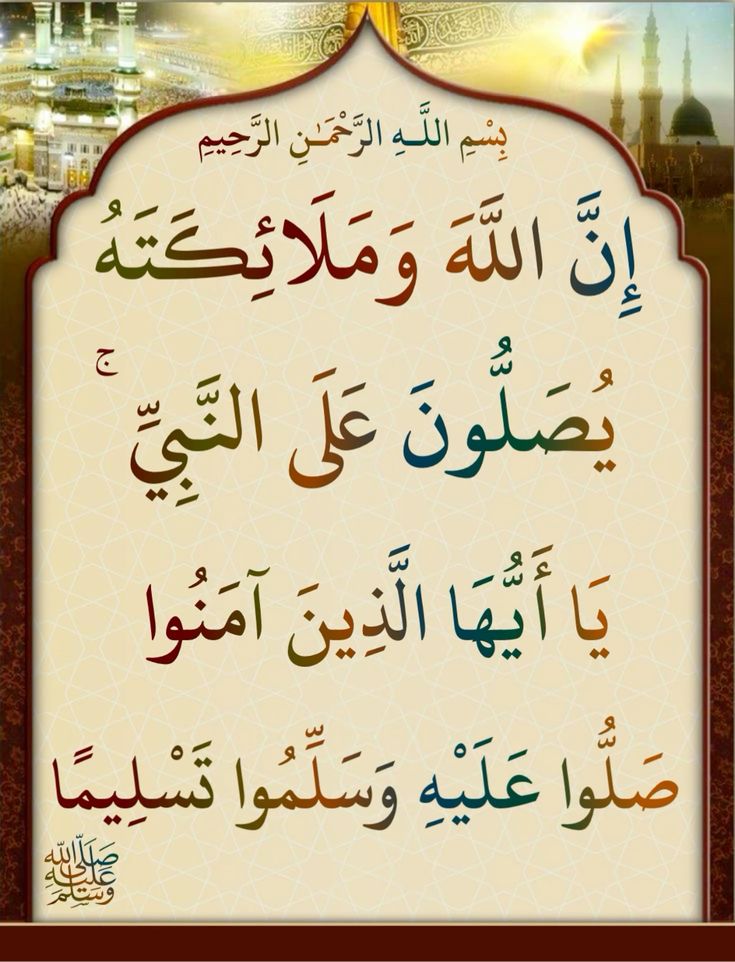 بِسْمِ اللَّـهِ الرَّحْمَـٰنِ الرَّحِيمِ
إِنَّ اللَّهَ وَمَلَائِكَتَهُ
يُصَلُّونَ عَلَى النَّبِيِّ ۚ
يَا أَيُّهَا الَّذِينَ آمَنُوا
صَلُّوا عَلَيْهِ وَسَلِّمُوا تَسْلِيمًا
صَلَّى اللّٰه عَلَيْهِ وَسَلَّمَ